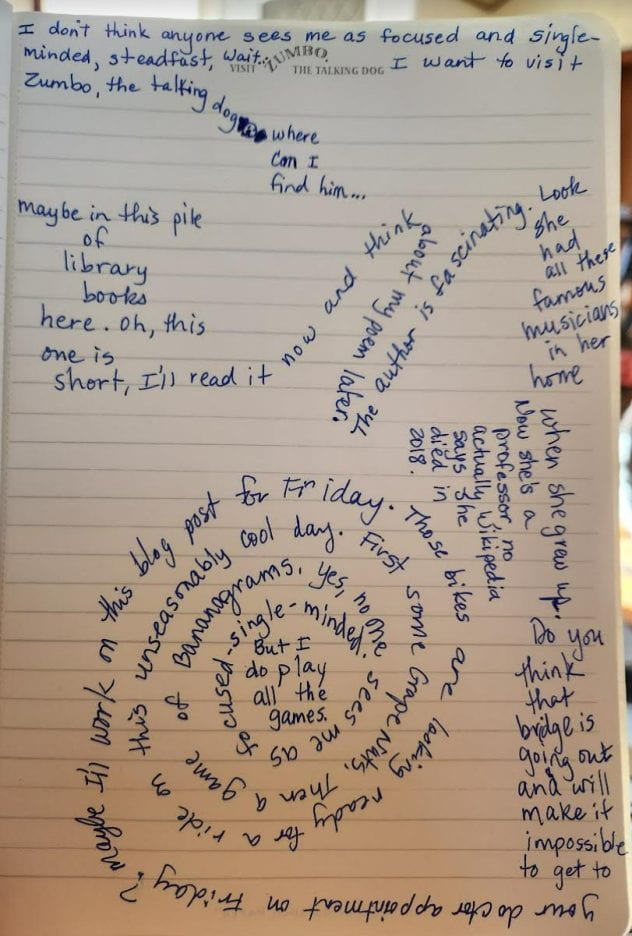 I don't think anyone sees me as focused and single-
minded, steadfast, wait.. VISIT ZUMBO, THE TALKING DOG I want to visit
Zumbo, the talking dog
where
can I
find him...
maybe in this pile
of
library
books
here. Oh, this
one is
short, I'll read it
now and think
about my poem later.
The author is fascinating.
Look
she
had
all these
famous
musicians
in her
home
when she grew up.
Now she's a
professor no
actually Wikipedia
says she
died in
2018.
Do you
think
that
bridge is
going out
and will
make it
impossible
to get to
your doctor appointment on Friday?
maybe I'll work on this blog post for Friday.
Those bikes are looking ready for a ride on this unseasonably cool day.
First some Grape Nuts. Then a game of Bananagrams.
yes, no one sees me as focused-single-minded.
But I
do play
all the
games.